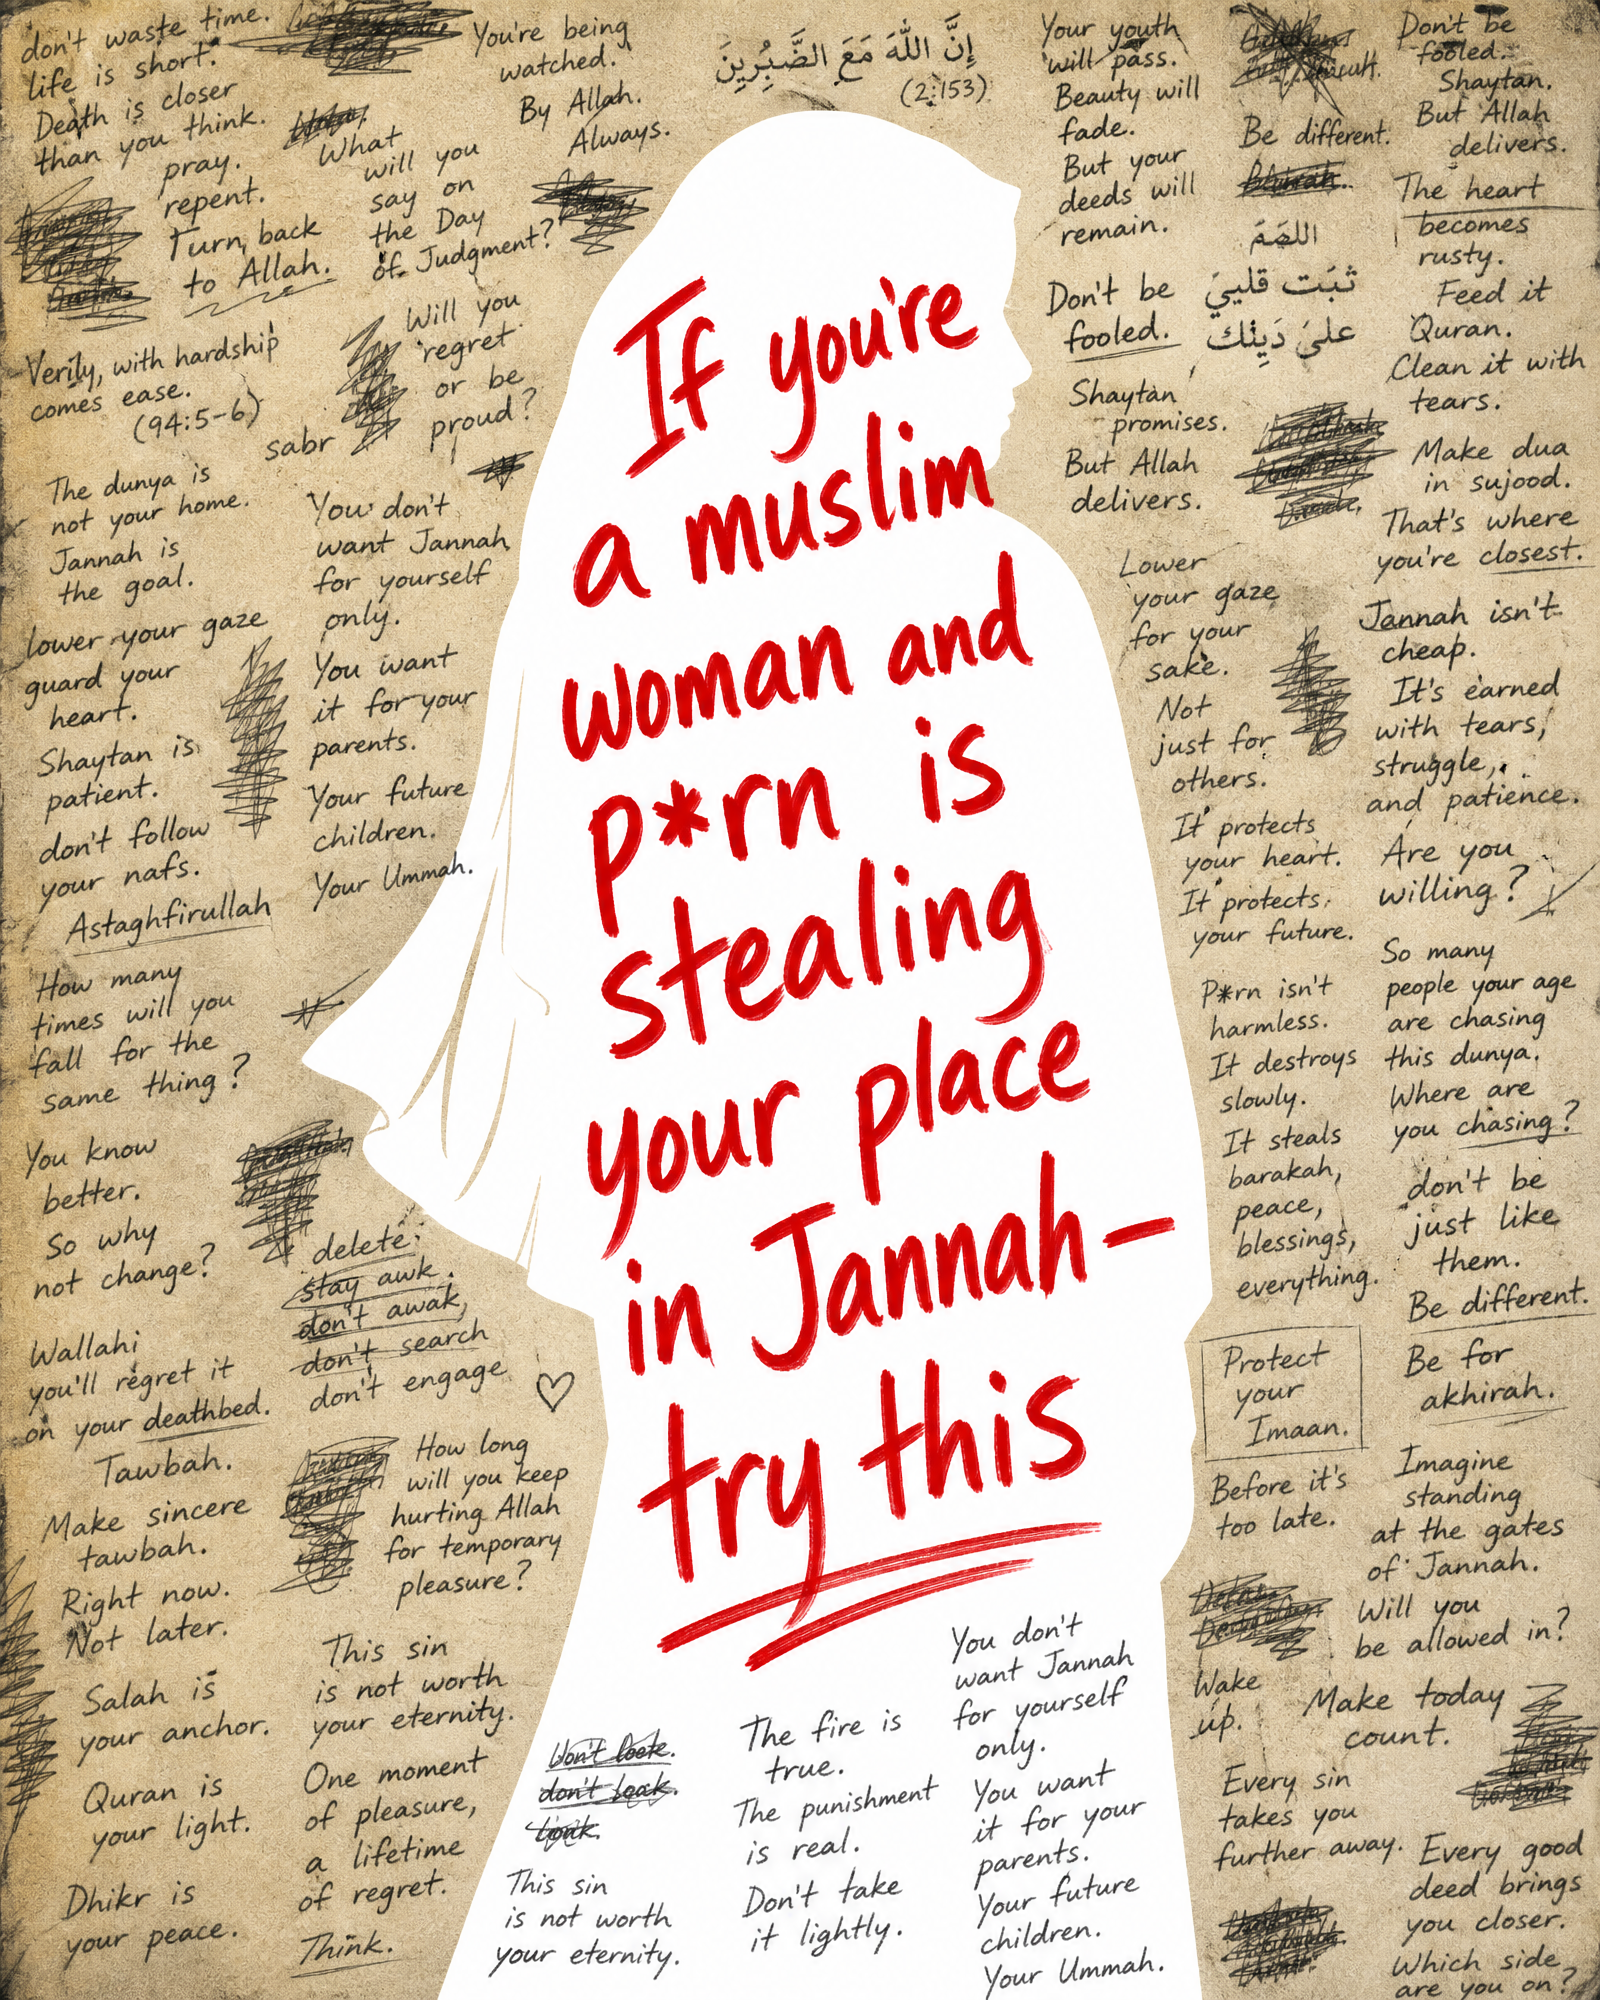 don't waste time.
life is short.
Death is closer
than you think.
pray.
repent.
Turn back
to Allah.
You're being
watched.
By Allah.
Always.
What
will you
say on
the Day
of Judgment?
Will you
regret
or be
proud?
إِنَّ اللّٰهَ مَعَ الضَّبُرِينَ
(2:153)
Your youth
will pass.
Beauty will
fade.
But your
deeds will
remain.
Be different.
اللصَمَ
ثبَت قلبيَ
علىَ دَيِنْك
Don't be
fooled.
Shaytan.
But Allah
delivers.
The heart
becomes
rusty.
Feed it
Quran.
Clean it with
tears.
Don't be
fooled.
Shaytan
promises.
But Allah
delivers.
Make dua
in sujood.
That's where
you're closest.
Verily, with hardship
comes ease.
(94:5-6)
sabr
The dunya is
not your home.
Jannah is
the goal.
lower your gaze
guard your
heart.
Shaytan is
patient.
don't follow
your nafs.
Astaghfirullah
You don't
want Jannah
for yourself
only.
You want
it for your
parents.
Your future
children.
Your Ummah.
If you're
a muslim
woman and
p*rn is
stealing
your place
in Jannah-
try this
Lower
your gaze
for your
sake.
Not
just for
others.
It protects
your heart.
It protects
your future.
Jannah isn't
cheap.
It's earned
with tears,
struggle,
and patience.
Are you
willing?
How many
times will you
fall for the
same thing?
You know
better.
So why
not change?
delete.
stay awk.
don't awak,
don't search
don't engage
P*rn isn't
harmless.
It destroys
slowly.
It steals
barakah,
peace,
blessings,
everything.
So many
people your age
are chasing
this dunya.
Where are
you chasing?
don't be
just like
them.
Be different.
Be for
akhirah.
Protect
your
Imaan.
Before it's
too late.
Wallahi
you'll regret it
on your deathbed.
Tawbah.
Make sincere
tawbah.
Right now.
Not later.
Salah is
your anchor.
Quran is
your light.
Dhikr is
your peace.
How long
will you keep
hurting Allah
for temporary
pleasure?
This sin
is not worth
your eternity.
One moment
of pleasure,
a lifetime
of regret.
Think.
don't look.
This sin
is not worth
your eternity.
The fire is
true.
The punishment
is real.
Don't take
it lightly.
You don't
want Jannah
for yourself
only.
You want
it for your
parents.
Your future
children.
Your Ummah.
Imagine
standing
at the gates
of Jannah.
Will you
be allowed in?
Wake
up.
Make today
count.
Every sin
takes you
further away.
Every good
deed brings
you closer.
Which side
are you on?